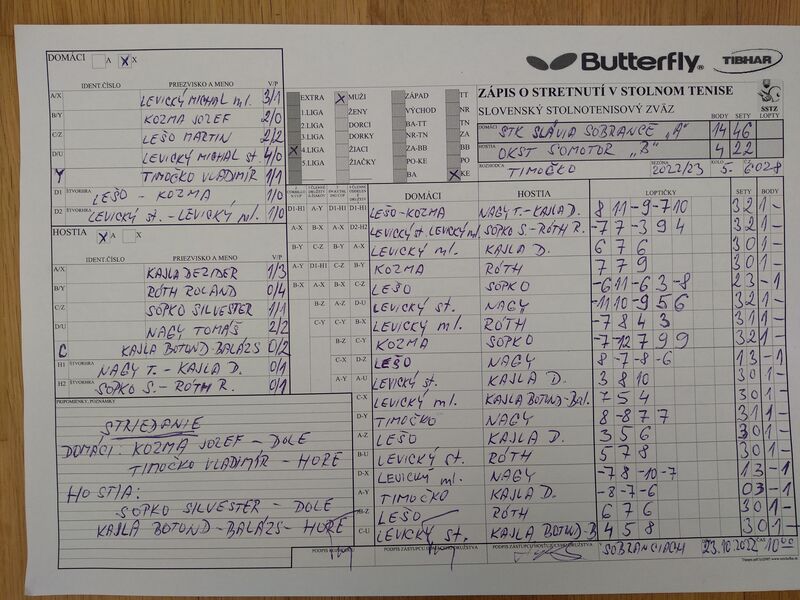 DOMÁCI A X
IDENT.ČÍSLO PRIEZVISKO A MENO V/P
A/X LEVICKÝ MICHAL ml. 3/1
B/Y KOZMA JOZEF 2/0
C/Z LEŠO MARTIN 2/2
D/U LEVICKÝ MICHAL st. 4/0
Y TIMOČKO VLADIMÍR 1/1
D1 ŠTVORHRA LEŠO - KOZMA 1/0
D2 ŠTVORHRA LEVICKÝ st. - LEVICKÝ ml. 1/0
HOSTIA A X
IDENT.ČÍSLO PRIEZVISKO A MENO V/P
A/X KAJLA DEZIDER 1/3
B/Y RÓTH ROLAND 0/4
C/Z SOPKO SILVESTER 1/1
D/U NAGY TOMÁŠ 2/2
C KAJLA BOTOND-BALÁZS 0/2
H1 ŠTVORHRA NAGY T. - KAJLA D. 0/1
H2 ŠTVORHRA SOPKO S. - RÓTH R. 0/1
PRIPOMIENKY, POZNÁMKY
STRIEDANIE
DOMÁCI: KOZMA JOZEF - DOLE
TIMOČKO VLADIMÍR - HORE
HOSTIA:
SOPKO SILVESTER - DOLE
KAJLA BOTOND-BALÁZS - HORE
Butterfly TIBHAR
EXTRA MUŽI ZÁPAD TT
1.LIGA ŽENY VÝCHOD NR
2.LIGA DORCI BA-TT TN
3.LIGA DORKY NR-TN ZA
4.LIGA ŽIACI ZA-BB BB
5.LIGA ŽIAČKY PO-KE PO
BA KE
ZÁPIS O STRETNUTÍ V STOLNOM TENISE
SLOVENSKÝ STOLNOTENISOVÝ ZVÄZ SSTZ
BODY SETY LOPTY
DOMÁCI STK SLÁVIA SOBRANCE "A" 14 46
HOSTIA OKST SOMOTOR "B" 4 22
ROZHODCA TIMOČKO SEZÓNA 2022/23 KOLO 5. 6028
DOMÁCI HOSTIA LOPTIČKY SETY BODY
D1-H1 A-Y D1-H1 D1-H1 LEŠO-KOZMA NAGY T.-KAJLA D. 8 11 -9 -7 10 3 2 1 -
A-X B-X A-X D2-H2 LEVICKÝ st. LEVICKÝ ml. SOPKO S-RÓTH R. -7 7 -3 9 4 3 2 1 -
B-Y C-Y B-Y A-X LEVICKÝ ml. KAJLA D. 6 7 6 3 0 1 -
A-Y D1-H1 C-Z B-Y KOZMA RÓTH 7 7 9 3 0 1 -
B-X A-X B-X C-Z LEŠO SOPKO -6 11 -6 3 -8 2 3 - 1
B-Z A-Z D-U LEVICKÝ st. NAGY -11 10 -9 5 6 3 2 1 -
C-Y C-Y B-X LEVICKÝ ml. RÓTH -7 8 4 3 3 1 1 -
B-Z C-Y KOZMA SOPKO -7 -12 7 9 9 3 2 1 -
C-X D-Z LEŠO NAGY 8 -7 -8 -6 1 3 - 1
A-Y A-U LEVICKÝ st. KAJLA D. 3 8 10 3 0 1 -
C-X LEVICKÝ ml. KAJLA BOTOND-Bal. 7 5 4 3 0 1 -
D-Y TIMOČKO NAGY 8 -8 7 7 3 1 1 -
A-Z LEŠO KAJLA D. 3 5 6 3 0 1 -
B-U LEVICKÝ st. RÓTH 5 7 8 3 0 1 -
D-X LEVICKÝ ml. NAGY -7 8 -10 -7 1 3 - 1
A-Y TIMOČKO KAJLA D. -8 -7 -6 0 3 - 1
B-Z LEŠO RÓTH 6 7 6 3 0 1 -
C-U LEVICKÝ st. KAJLA BOTOND-B 4 5 8 3 0 1 -
PODPIS ROZHODCU PODPIS ZÁSTUPCU DOMÁCEHO DRUŽSTVA PODPIS ZÁSTUPCU HOSŤUJÚCEHO DRUŽSTVA V SOBRANCIACH 23.10.2022 ČAS 10 00